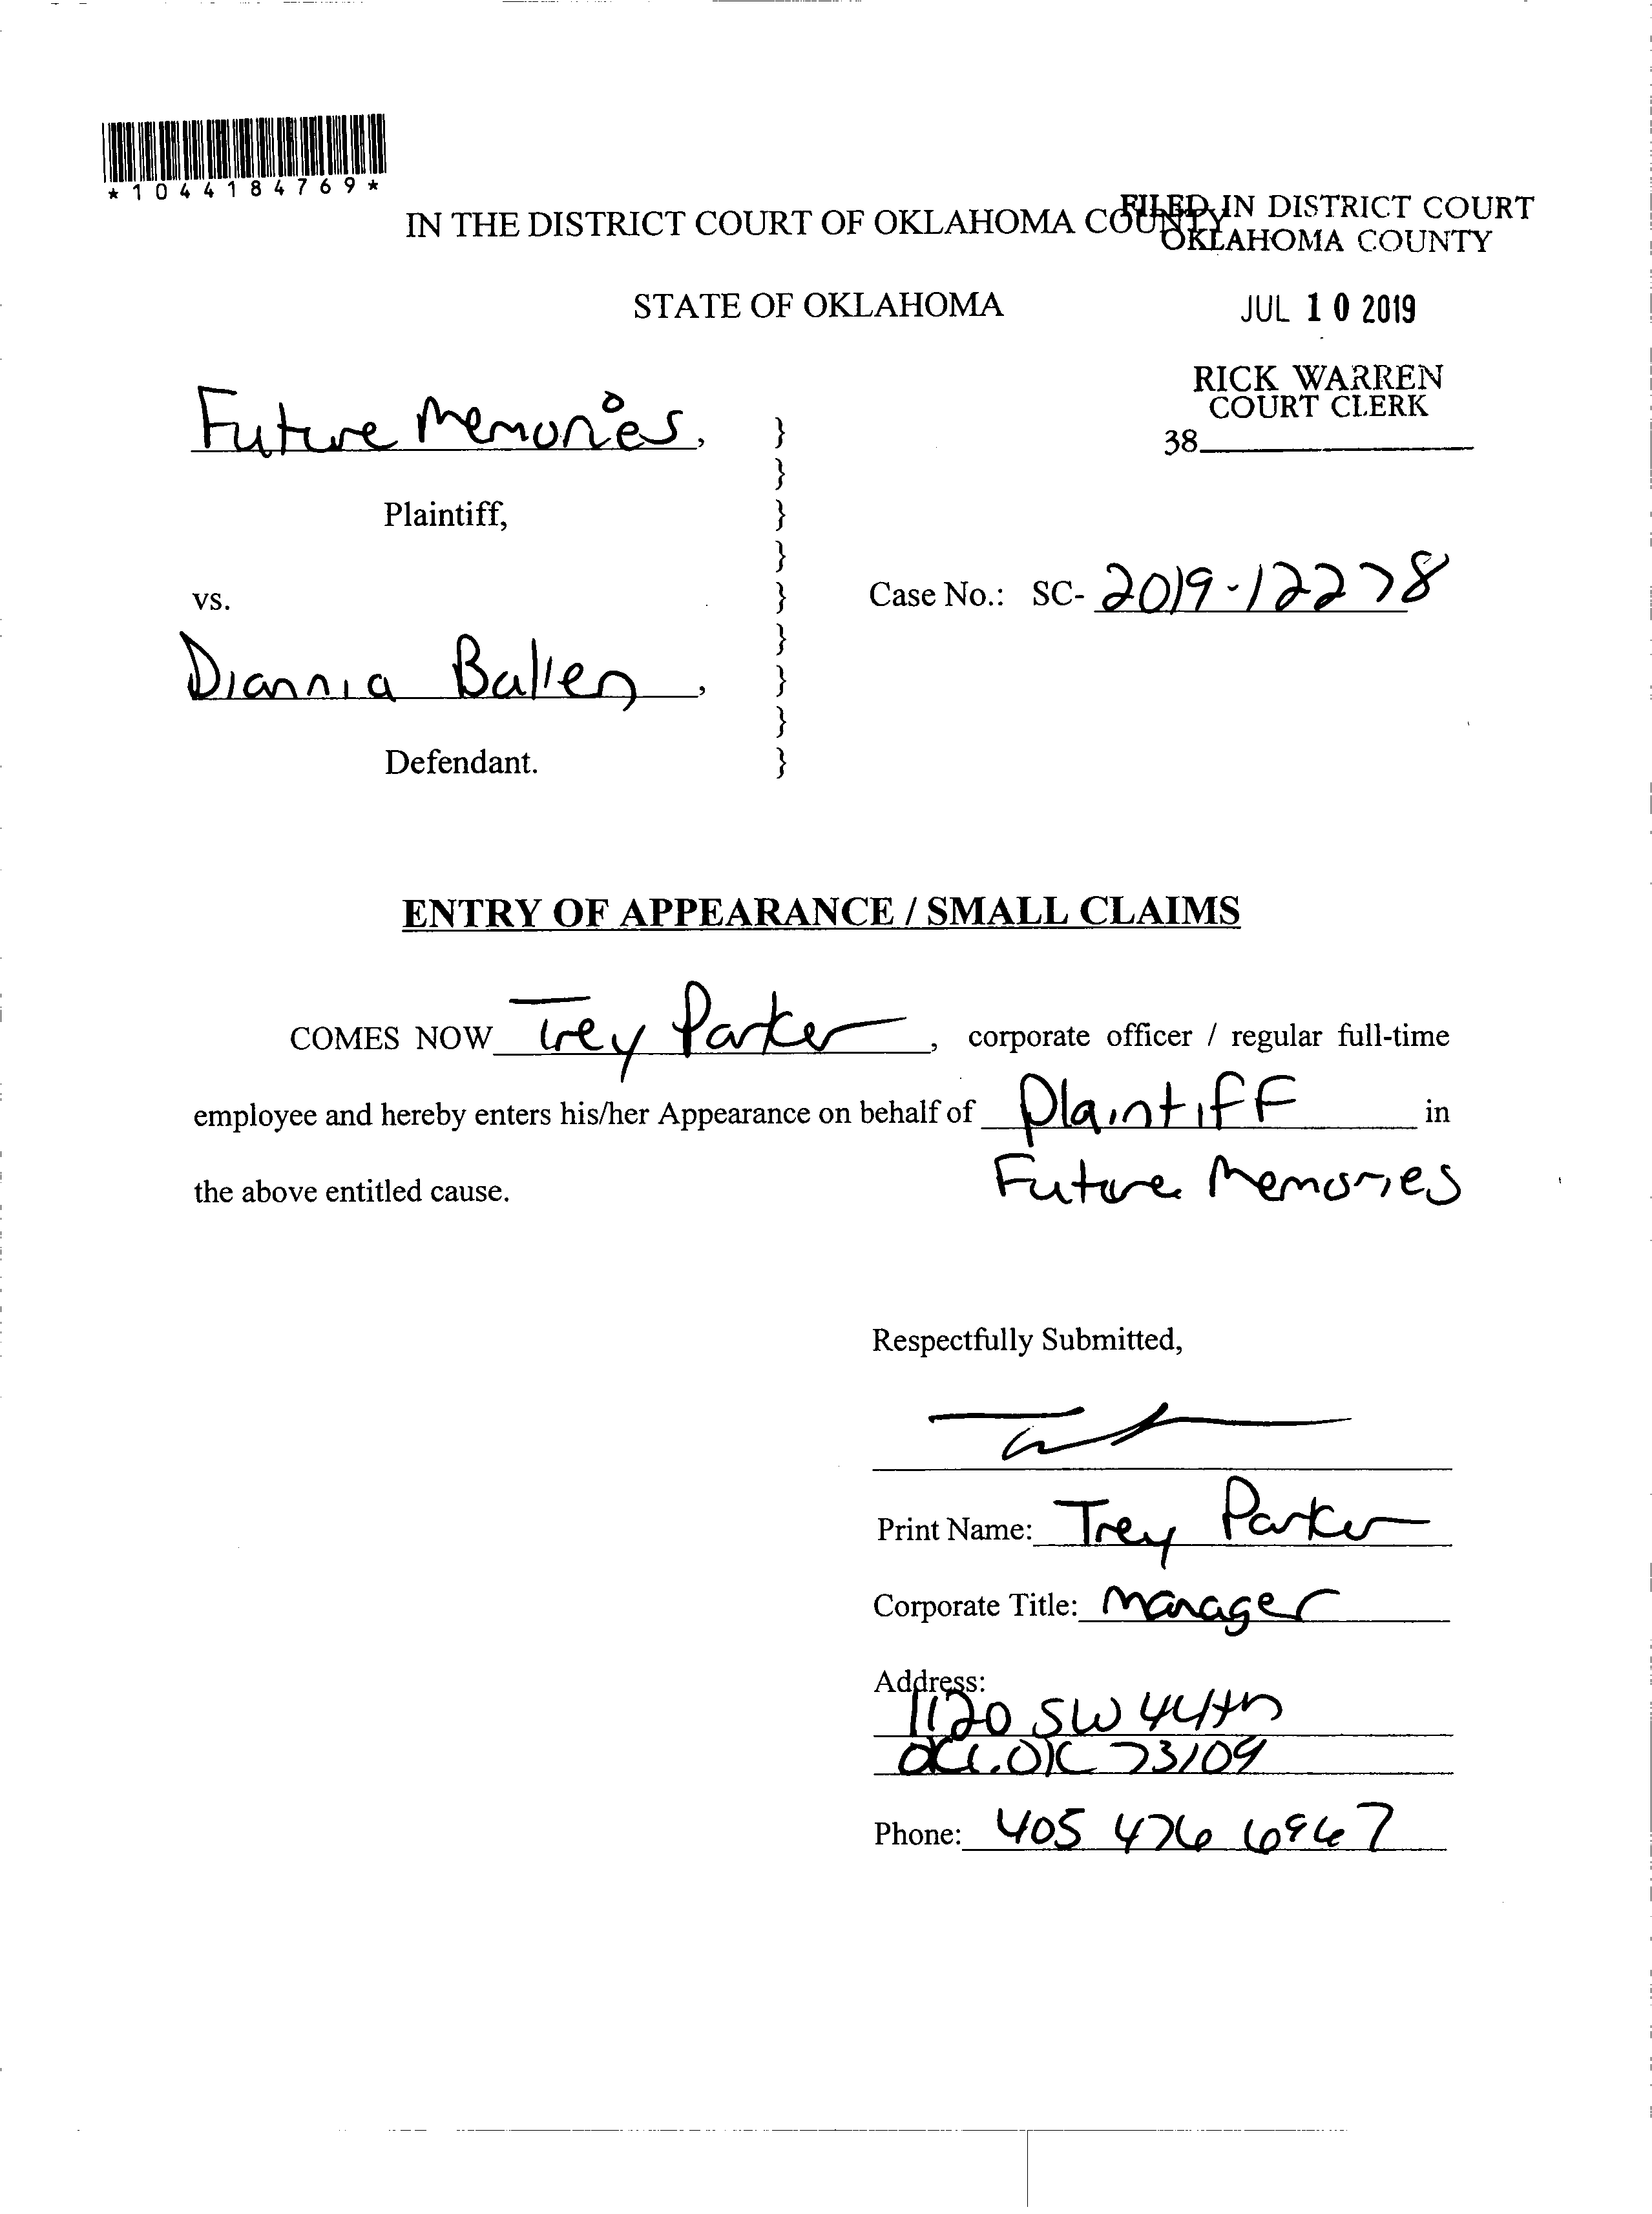 *1044184769*
FILED IN DISTRICT COURT
OKLAHOMA COUNTY
IN THE DISTRICT COURT OF OKLAHOMA COUNTY
STATE OF OKLAHOMA
JUL 10 2019
RICK WARREN
COURT CLERK
38
Future Memories,
Plaintiff,
vs.
Case No.: SC- 2019-12278
Diannia Ballen,
Defendant.
ENTRY OF APPEARANCE / SMALL CLAIMS
COMES NOW Trey Parker, corporate officer / regular full-time
employee and hereby enters his/her Appearance on behalf of Plaintiff in
the above entitled cause. Future Memories
Respectfully Submitted,
Print Name: Trey Parker
Corporate Title: Manager
Address:
1120 SW 44th
OK 73109
Phone: 405 476 6967